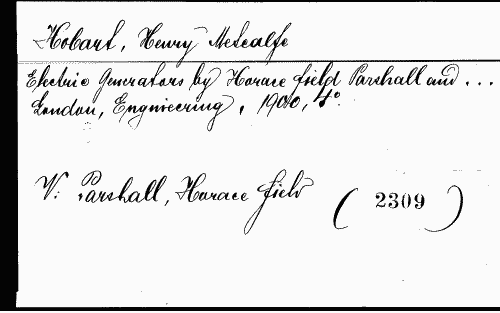 Hobart, Henry Metcalfe
Electric Generators by Horace field Parshall and ...
London, Engnieering, 1900, 4º.
V: Parshall, Horace field
(2309)